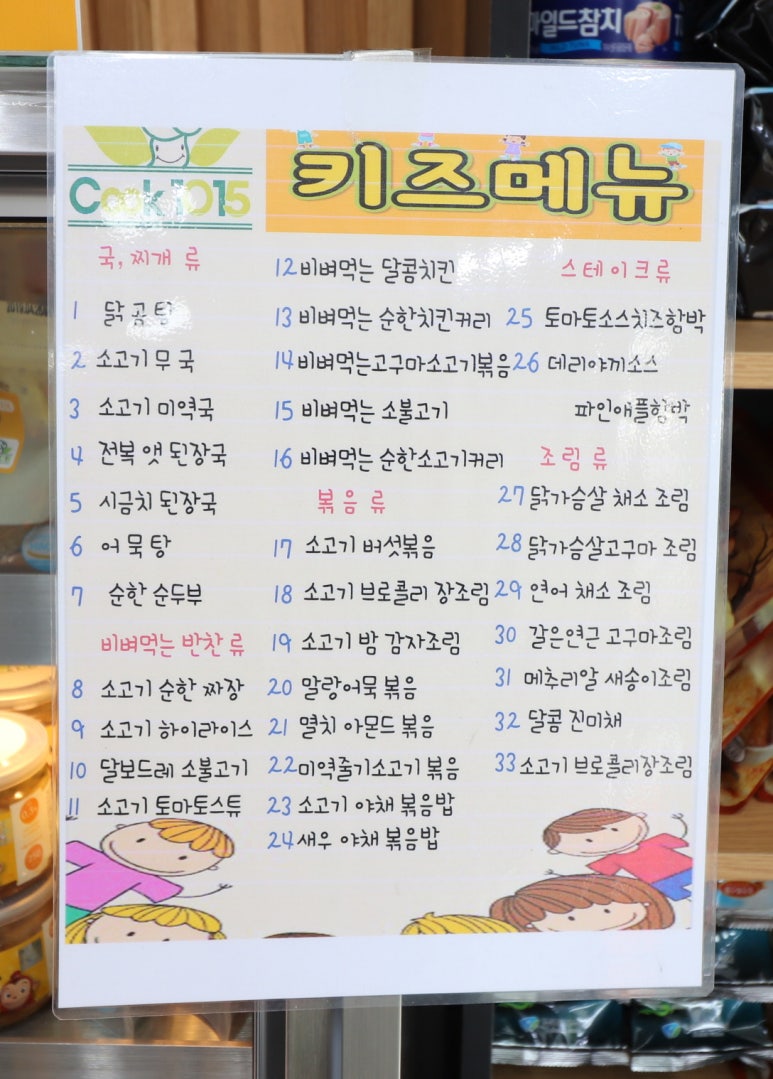 마일드참치
Cook1015
키즈메뉴
국, 찌개 류
1 닭 곰 탕
2 소고기 무 국
3 소고기 미역국
4 전복 앳 된장국
5 시금치 된장국
6 어 묵 탕
7 순한 순두부
비벼먹는 반찬 류
8 소고기 순한 짜장
9 소고기 하이라이스
10 달보드레 소불고기
11 소고기 토마토스튜
12 비벼먹는 달콤치킨
13 비벼먹는 순한치킨커리
14 비벼먹는고구마소고기볶음
15 비벼먹는 소불고기
16 비벼먹는 순한소고기커리
볶음 류
17 소고기 버섯볶음
18 소고기 브로콜리 장조림
19 소고기 밤 감자조림
20 말랑어묵 볶음
21 멸치 아몬드 볶음
22 미역줄기소고기 볶음
23 소고기 야채 볶음밥
24 새우 야채 볶음밥
스테이크류
25 토마토소스치즈함박
26 데리야끼소스
파인애플함박
조림 류
27 닭가슴살 채소 조림
28 닭가슴살고구마 조림
29 연어 채소 조림
30 갈은연근 고구마조림
31 메추리알 새송이조림
32 달콤 진미채
33 소고기 브로콜리장조림